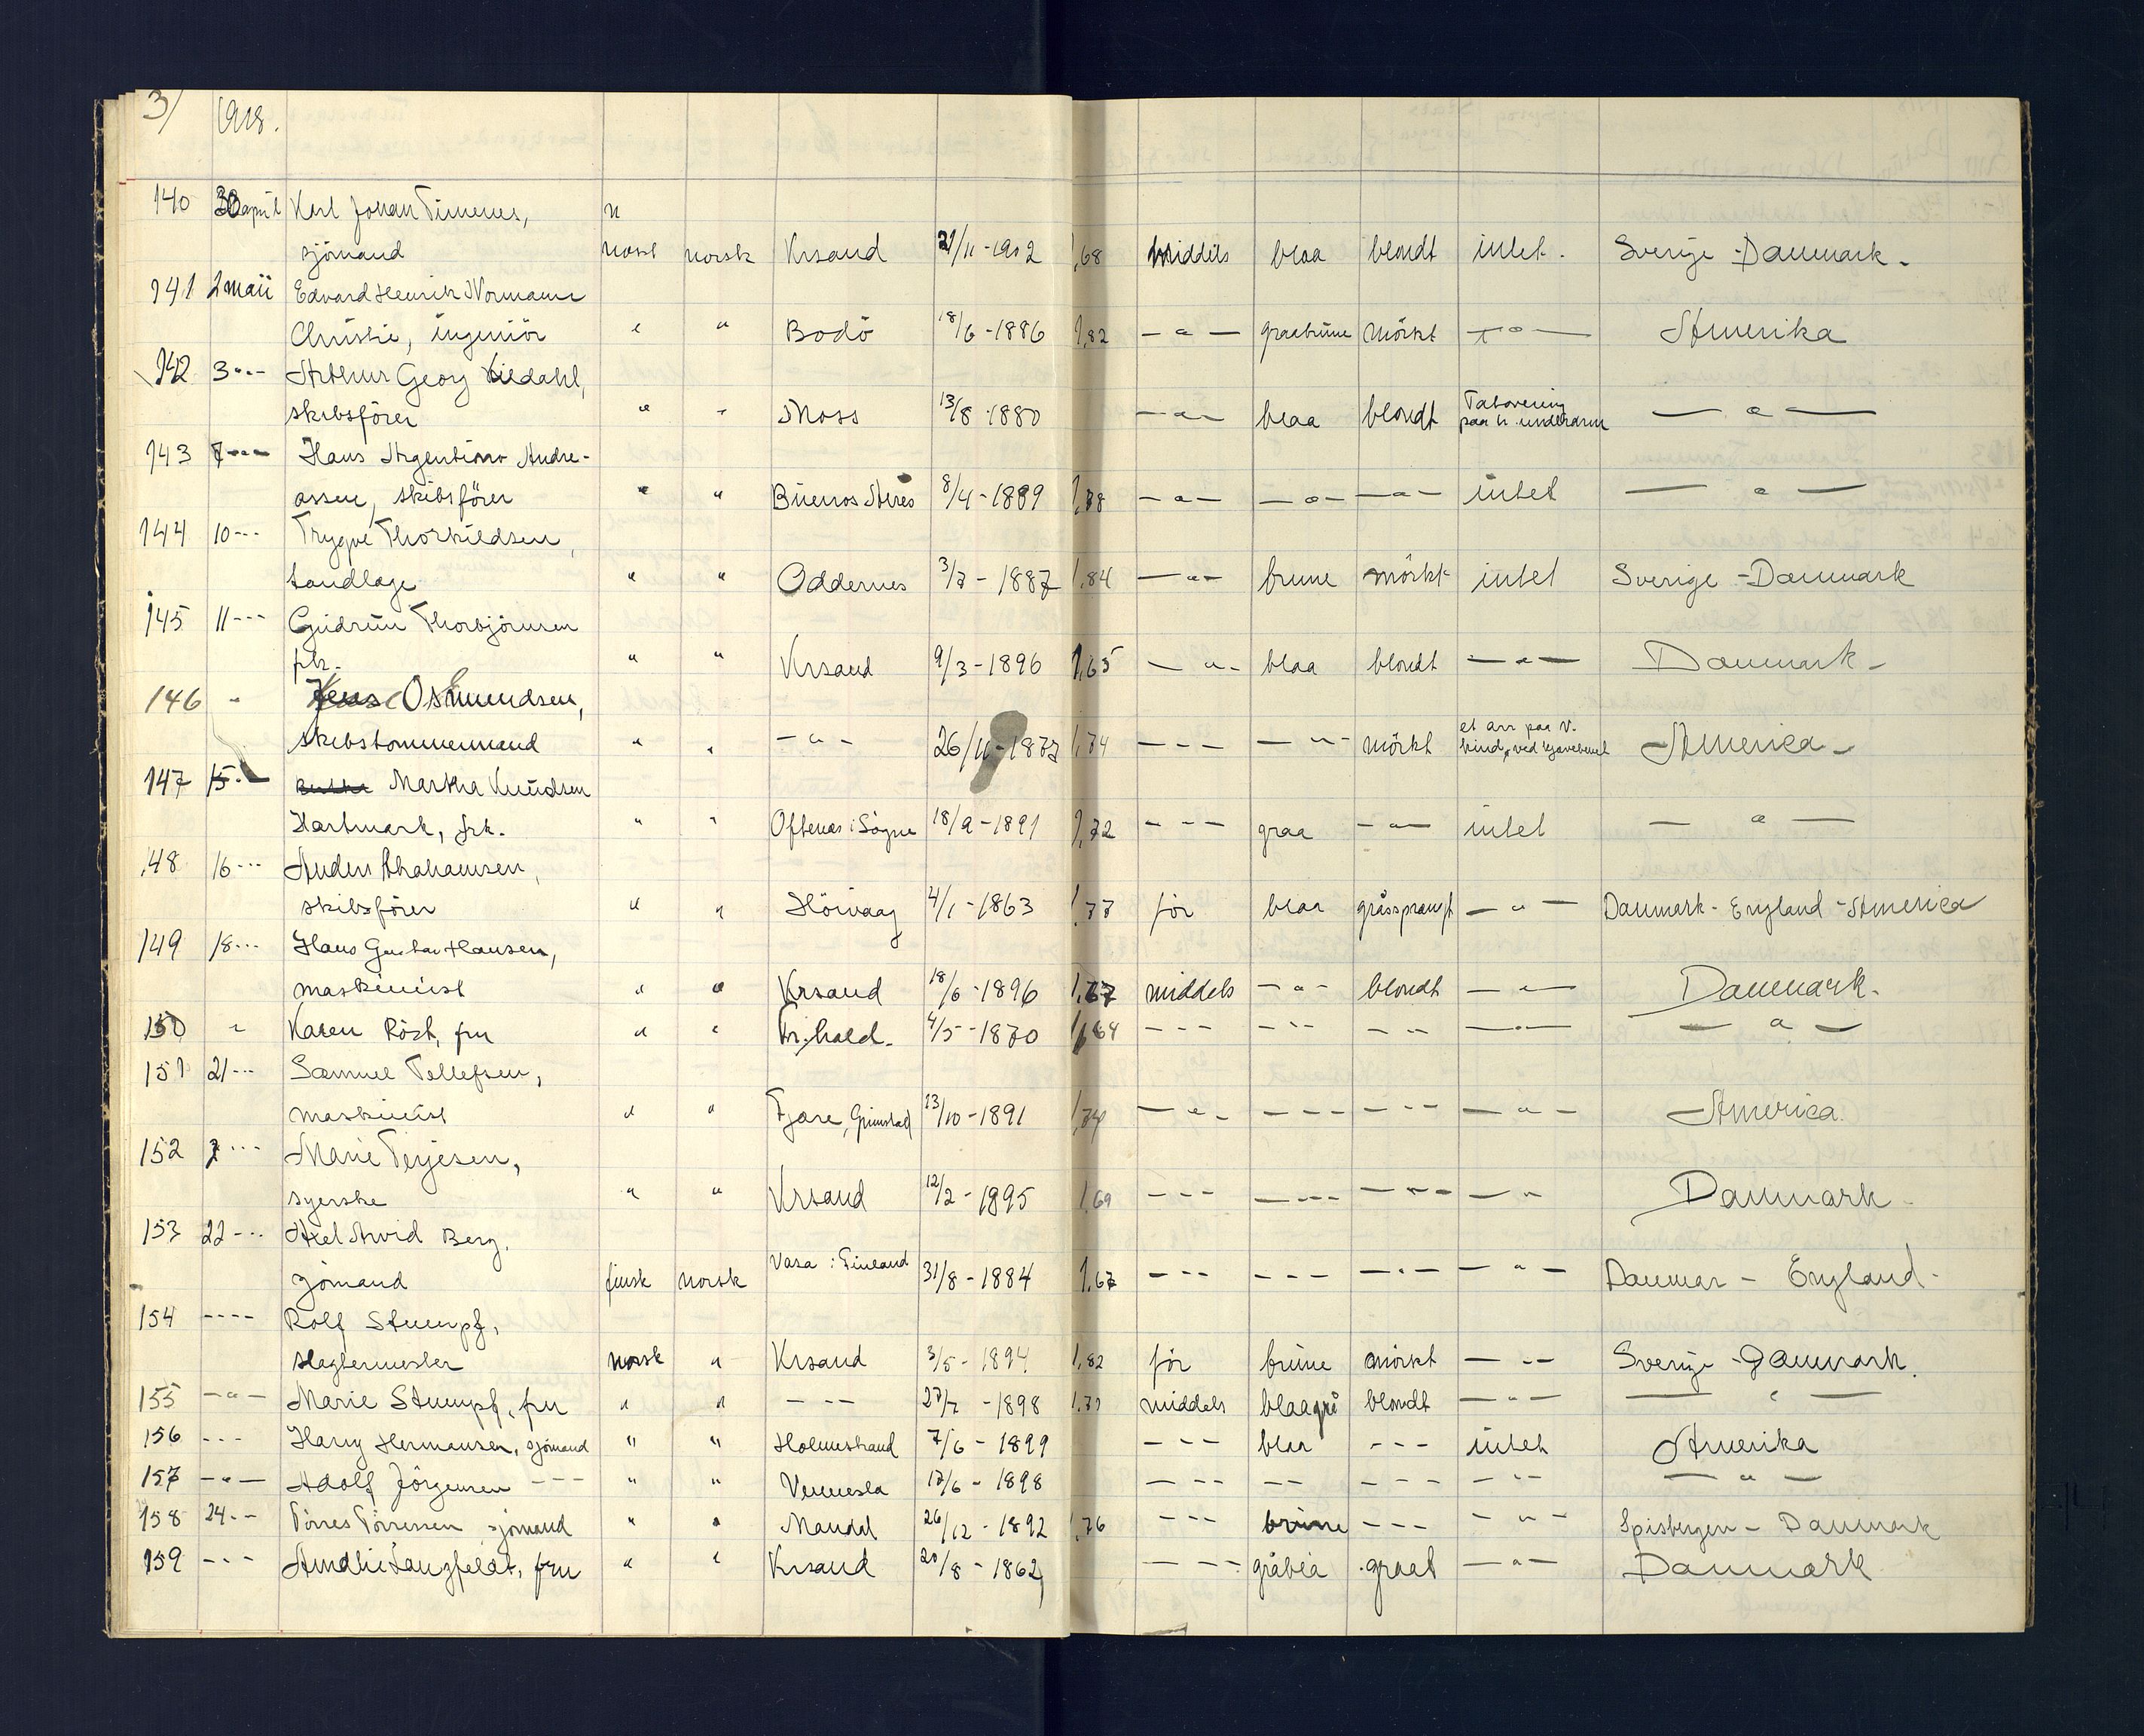 3/ 1918.
140 30 april Karl Johan
sjömand norsk norsk Krsand 21/11-1902 1,68 Middels blaa blondt intet. Sverige-Danmark-
141 2 maii Edvard Henrik Normann
Christie, ingeniör " " Bodö 18/6-1886 1,82 —"— graabrune Mörkt —"— Amerika
142 3"-- Arthur Georg
skibsförer " " Moss 13/8-1880 —"— blaa blondt Tatovering paa h. underarm —"—
143 7--- Hans Argentino Andre-
assen, skibsförer " " Buenos Aires 8/4-1889 1,78 —"— —"— —"— intet —"—
144 10--- Trygve Thorkildsen,
tandlæge " " Oddernes 3/7-1887 1,84 —"— brune mörkt intet Sverige-Danmark
145 11--- Gudrun Thorbjörnsen
" " Krsand 9/3-1896 1,65 —"— blaa blondt —"— Danmark-
146 " Osmundsen,
skibstömmermand " " —"— 26/11-1877 1,74 --- —"— mörkt et arr paa v. kind, ved kjævebenet America-
147 15-- Martha Knudsen
Hartmark, frk. " " Oftenes i Sögne 18/9-1891 1,72 --- graa —"— intet —"—
148 16--- Anders Abrahamsen,
skibsförer " " Hövaag 4/1-1863 1,77 för blaa gråsprængt —"— Danmark-England-America
149 18--- Hans Gustav Hansen,
maskinist " " Krsand 18/6-1896 1,67 middels —"— blondt —"— Danmark-
150 " Karen Röst, fru " " Fr.hald. 4/5-1870 1,64 --- --- --- —"— —"—
151 21--- Samuel Tellefsen,
maskinist " " Fjære, Grimstad 13/10-1891 1,74 —"— --- --- —"— America.
152 7--- Marie Terjesen,
syerske " " Krsand 12/2-1895 1,69 --- --- --- —"— Danmark-
153 22--- Axel Arvid Berg,
sjömand finsk norsk Vasa i Finland 31/8-1884 1,67 --- --- —"— —"— Danmar - England-
154 ---- Rolf Stumpf,
slagtermester norsk " Krsand 3/5-1894 1,82 för brune mörkt --- Sverige-Danmark.
155 —"— Marie Stumpf, fru " " --- 27/7-1898 1,71 middels blaagrå blondt —"— —"—
156 --- Harry Hermansen, sjömand " " Holmestrand 7/6-1899 --- blaa --- intet Amerika
157 —"— Adolf Jörgensen --- " " Vennesla 17/6-1898 --- -- --- —"— —"—
158 24-- Törres Törressen sjömand " " Mandal 26/12-1892 1,76 --- brune --- —"— Spisbergen - Danmark
159 --- Amalie Langfeldt, fru " " Krsand 20/8-1862 --- gråblå graat —"— Danmark